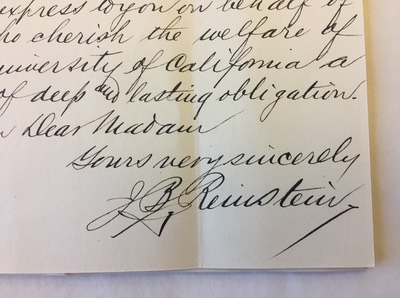 express to you on behalf of
who cherish the welfare of
University of California a
of deep and lasting obligation.
Dear Madam
Yours very sincerely
J. B. Reinstein